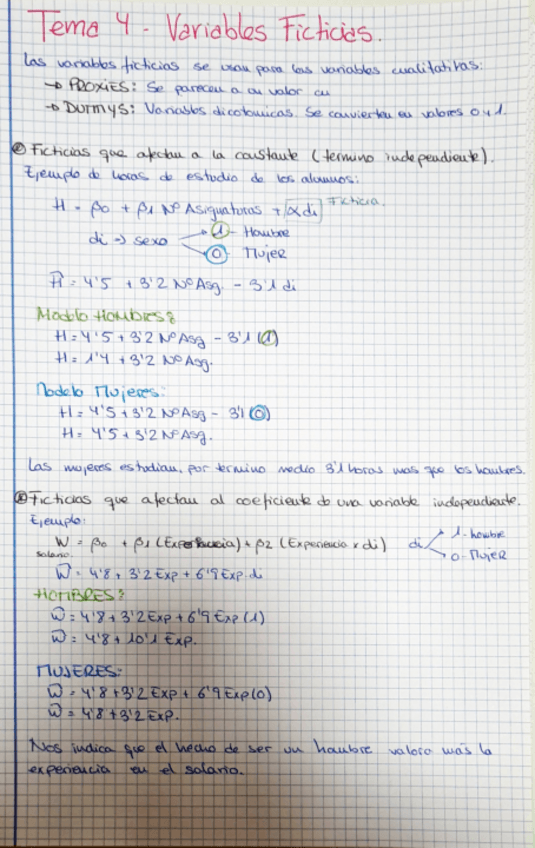 Tema 4 - Variables Ficticias.
Las variables ficticias se usan para las variables cualitativas:
→ PROXIES: Se parecen a un valor cu
→ DUMMYS: Variables dicotomicas. Se convierten en valores 0 y 1.
Ficticias que afectan a la constante (termino independiente).
Ejemplo de horas de estudio de los alumnos:
H = β0 + β1 Nº Asignaturas + α di Ficticia
di ⇒ sexo
1 - Hombre
0 - Mujer
Ĥ = 4'5 + 3'2 NºAsg. - 3'1 di
Modelo Hombres:
H = 4'5 + 3'2 NºAsg - 3'1 (1)
H = 1'4 + 3'2 NºAsg.
Modelo Mujeres:
H = 4'5 + 3'2 NºAsg - 3'1 (0)
H = 4'5 + 3'2 NºAsg.
Las mujeres estudian, por termino medio 3'1 horas mas que los hombres.
Ficticias que afectan al coeficiente de una variable independiente.
Ejemplo:
W = β0 + β1 (Experiencia) + β2 (Experiencia x di)
salario
di
1 - hombre
0 - Mujer
Ŵ = 4'8 + 3'2 Exp + 6'9 Exp.di
HOMBRES:
Ŵ = 4'8 + 3'2 Exp + 6'9 Exp (1)
Ŵ = 4'8 + 10'1 Exp.
MUJERES:
Ŵ = 4'8 + 3'2 Exp + 6'9 Exp (0)
Ŵ = 4'8 + 3'2 Exp.
Nos indica que el hecho de ser un hombre valora más la
experiencia en el salario.